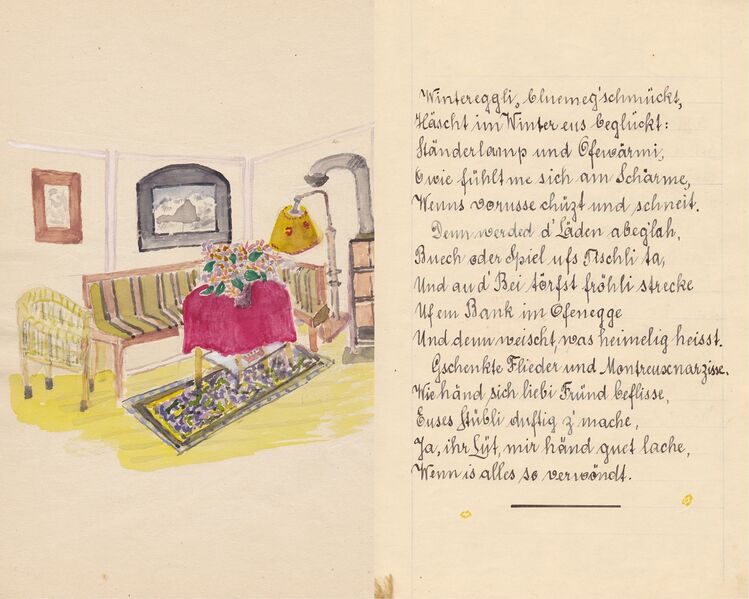 Wintereggli, bluemeg'schmückt,
Häscht im Winter eus beglückt:
Ständerlamp und Ofewärmi,
O wie fühlt me sich am Schärme,
Wenns vorusse chūzt und schneit.
Denn werded d'Läden abeg'lah,
Buech oder Spiel ufs Tischli ta,
Und au d'Bei törfst fröhli strecke
Uf em Bank im Ofenegge
Und denn weischt, was heimelig heisst.
Gschenkte Flieder und Montreuxnarzisse.
Wie händ sich liebi Fründ beflisse,
Euses Stübli duftig z'mache,
Ja, ihr Lüt, mir händ guet lache,
Wenn is alles so verwöndt.